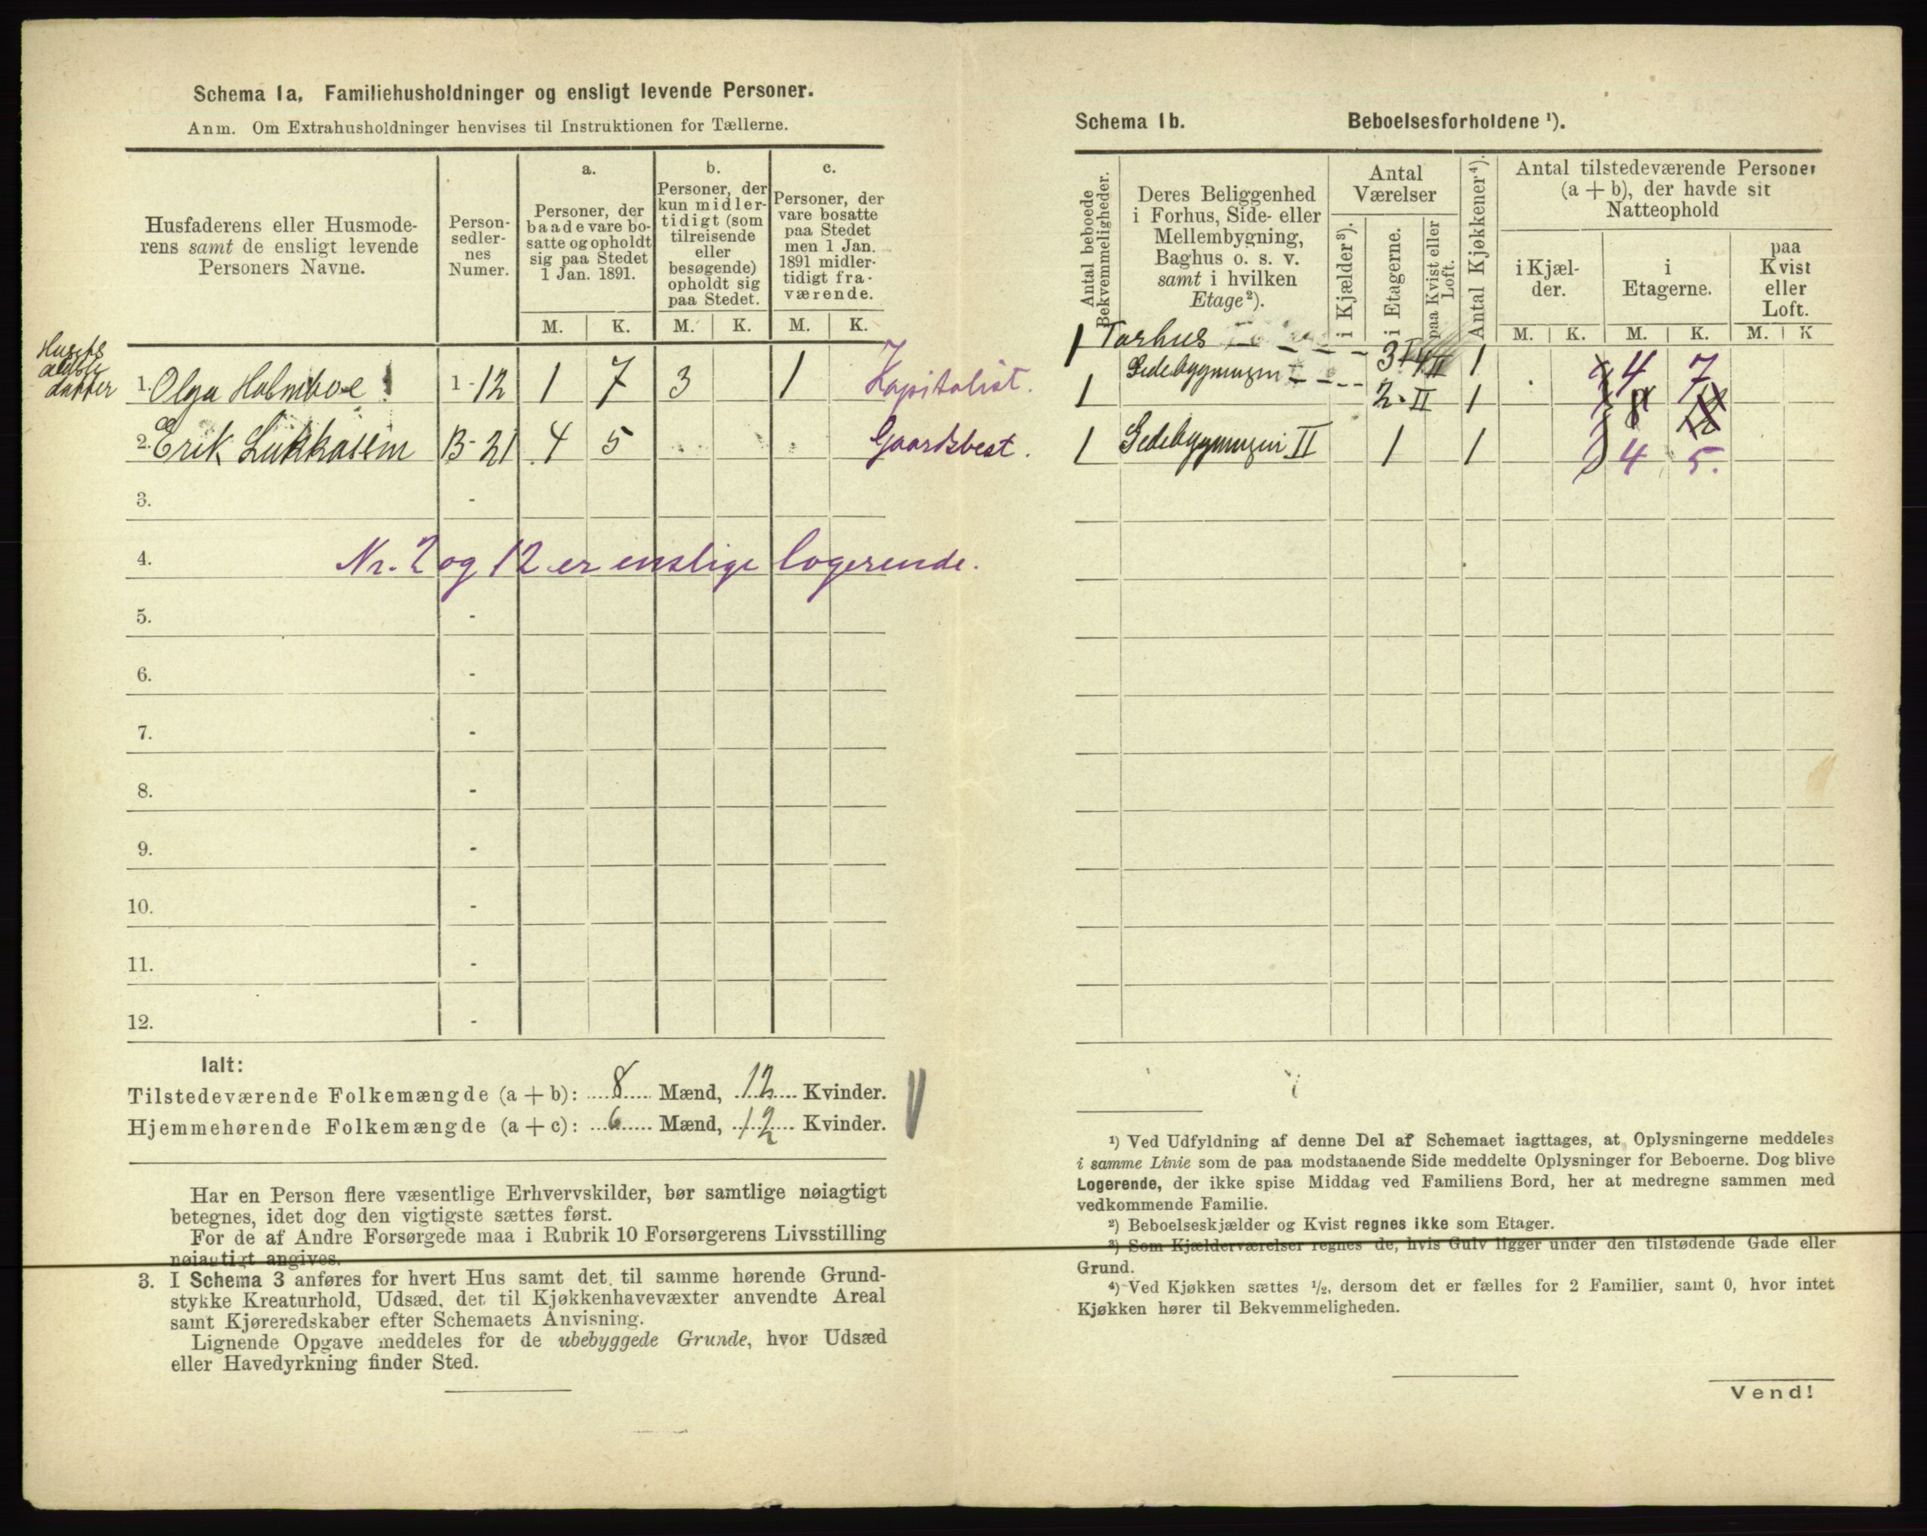 Schema 1a. Familiehusholdninger og ensligt levende Personer.
Anm. Om Extrahusholdninger henvises til Instruktionen for Tællerne.
Husfaderens eller Husmode-
rens samt de ensligt levende
Personers Navne.
Person-
sedler-
nes
Numer.
a.
Personer, der
baade vare bo-
satte og opholdt
sig paa Stedet
1 Jan. 1891.
b.
Personer, der
kun midler-
tidigt (som
tilreisende
eller
besøgende)
opholdt sig
paa Stedet.
c.
Personer, der
vare bosatte
paa Stedet
men 1 Jan.
1891 midler-
tidigt fra-
værende.
M. K. M. K. M. K.
Husets
ældste
datter
1. Olga Holmboe! 1-12 1 7 3 1 Kapitalist.
2. Erik Lukkasem 13-21 4 5 Gaardsbest.
3. -
4. Nr. 2 og 12 er enslige logerende.
5. -
6. -
7. -
8. -
9. -
10. -
11. -
12. -
Ialt:
Tilstedeværende Folkemængde (a + b): 8 Mænd, 12 Kvinder.
Hjemmehørende Folkemængde (a + c): 6 Mænd, 12 Kvinder.
Har en Person flere væsentlige Erhvervskilder, bør samtlige nøiagtigt
betegnes, idet dog den vigtigste sættes først.
For de af Andre Forsørgede maa i Rubrik 10 Forsørgerens Livsstilling
nøiagtigt angives.
3. I Schema 3 anføres for hvert Hus samt det til samme hørende Grund-
stykke Kreaturhold, Udsæd, det til Kjøkkenhavevæxter anvendte Areal
samt Kjøreredskaber efter Schemaets Anvisning.
Lignende Opgave meddeles for de ubebyggede Grunde, hvor Udsæd
eller Havedyrkning finder Sted.
Schema 1b. Beboelsesforholdene ¹).
Antal beboede
Bekvemmeligheder.
Deres Beliggenhed
i Forhus, Side- eller
Mellembygning,
Baghus o. s. v.
samt i hvilken
Etage²).
Antal
Værelser
i Kjælder³).
i Etagerne.
paa Kvist eller
Loft.
Antal Kjøkkener⁴).
Antal tilstedeværende Personer
(a + b), der havde sit
Natteophold
i Kjæl-
der.
i
Etagerne.
paa
Kvist
eller
Loft.
M. K. M. K. M. K
1 Forhus 3 I 1 4 7
1 Sidebygningen 2 II 1 8
1 Sidebygningen II 1 1 4 5.
¹) Ved Udfyldning af denne Del af Schemaet iagttages, at Oplysningerne meddeles
i samme Linie som de paa modstaaende Side meddelte Oplysninger for Beboerne. Dog blive
Logerende, der ikke spise Middag ved Familiens Bord, her at medregne sammen med
vedkommende Familie.
²) Beboelseskjælder og Kvist regnes ikke som Etager.
³) Som Kjælderværelser regnes de, hvis Gulv ligger under den tilstødende Gade eller
Grund.
⁴) Ved Kjøkken sættes ½, dersom det er fælles for 2 Familier, samt 0, hvor intet
Kjøkken hører til Bekvemmeligheden.
Vend!